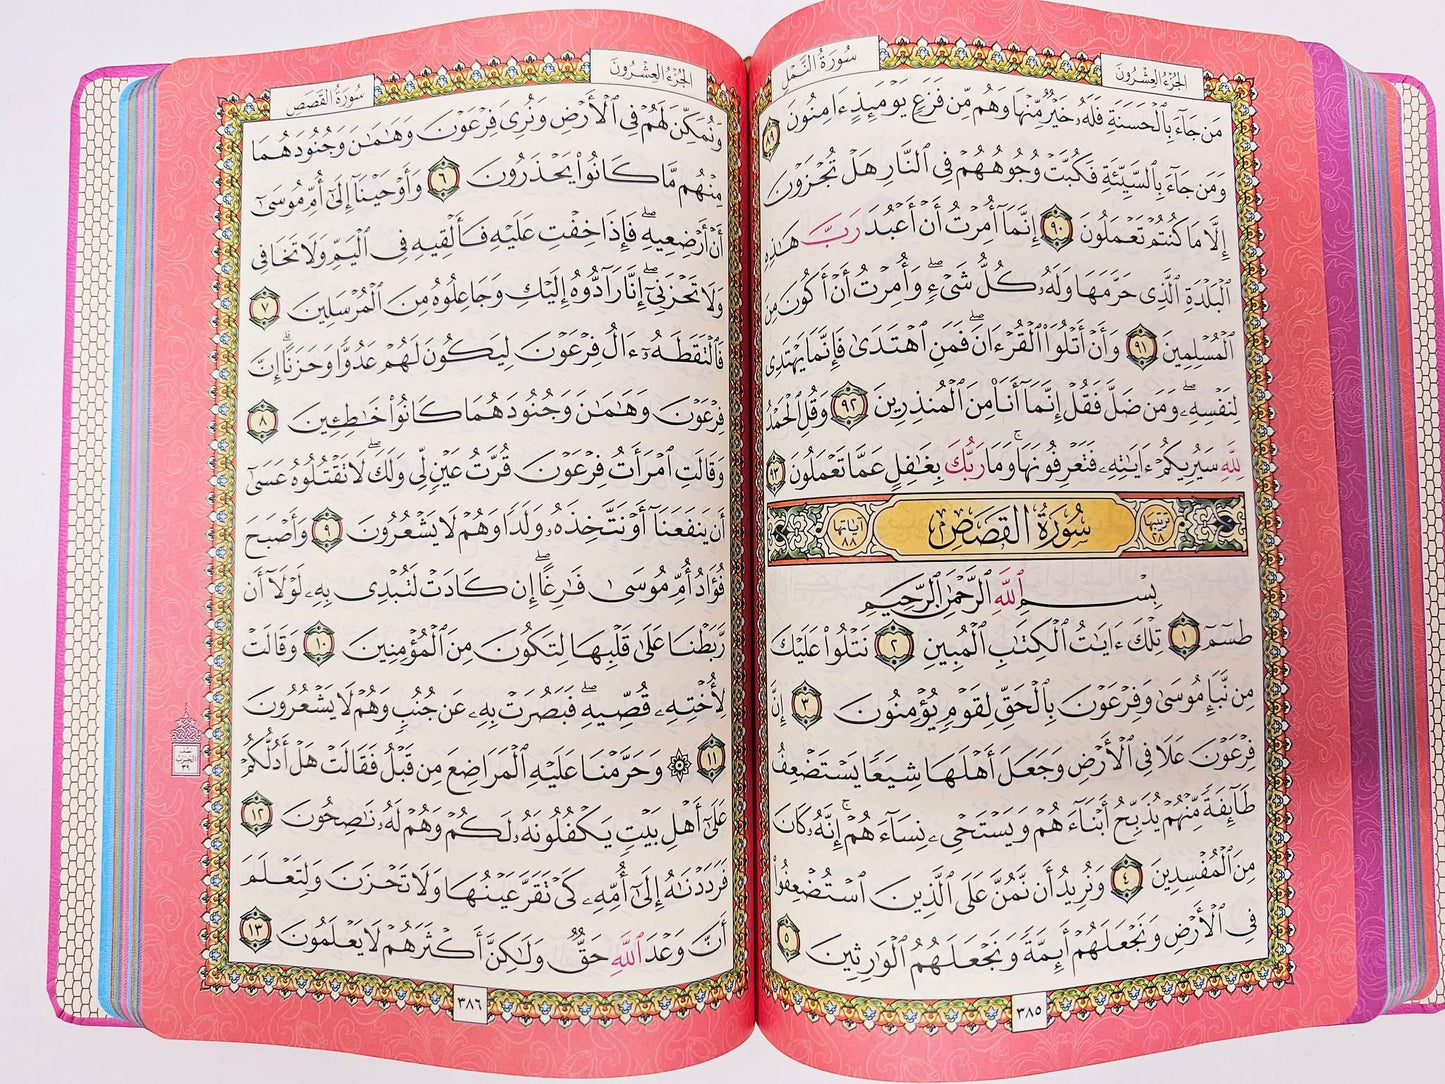 الجزء العشرون
سورة النمل
مَن جَآءَ بِٱلْحَسَنَةِ فَلَهُۥ خَيْرٌ مِّنْهَا وَهُم مِّن فَزَعٍ يَوْمَئِذٍ ءَامِنُونَ ٨٩
وَمَن جَآءَ بِٱلسَّيِّئَةِ فَكُبَّتْ وُجُوهُهُمْ فِى ٱلنَّارِ هَلْ تُجْزَوْنَ
إِلَّا مَا كُنتُمْ تَعْمَلُونَ ٩٠ إِنَّمَآ أُمِرْتُ أَنْ أَعْبُدَ رَبَّ هَـٰذِهِ
ٱلْبَلْدَةِ ٱلَّذِى حَرَّمَهَا وَلَهُۥ كُلُّ شَىْءٍۖ وَأُمِرْتُ أَنْ أَكُونَ مِنَ
ٱلْمُسْلِمِينَ ٩١ وَأَنْ أَتْلُوَا۟ ٱلْقُرْءَانَۖ فَمَنِ ٱهْتَدَىٰ فَإِنَّمَا يَهْتَدِى
لِنَفْسِهِۦۖ وَمَن ضَلَّ فَقُلْ إِنَّمَآ أَنَا۠ مِنَ ٱلْمُنذِرِينَ ٩٢ وَقُلِ ٱلْحَمْدُ
لِلَّهِ سَيُرِيكُمْ ءَايَـٰتِهِۦ فَتَعْرِفُونَهَاۚ وَمَا رَبُّكَ بِغَـٰفِلٍ عَمَّا تَعْمَلُونَ ٩٣
ترتيبها ٢٨ سُورَةُ القَصَصِ آياتها ٨٨
بِسْمِ ٱللَّهِ ٱلرَّحْمَـٰنِ ٱلرَّحِيمِ
طسٓمٓ ١ تِلْكَ ءَايَـٰتُ ٱلْكِتَـٰبِ ٱلْمُبِينِ ٢ نَتْلُوا۟ عَلَيْكَ
مِن نَّبَإِ مُوسَىٰ وَفِرْعَوْنَ بِٱلْحَقِّ لِقَوْمٍ يُؤْمِنُونَ ٣ إِنَّ
فِرْعَوْنَ عَلَا فِى ٱلْأَرْضِ وَجَعَلَ أَهْلَهَا شِيَعًا يَسْتَضْعِفُ
طَآئِفَةً مِّنْهُمْ يُذَبِّحُ أَبْنَآءَهُمْ وَيَسْتَحْىِۦ نِسَآءَهُمْۚ إِنَّهُۥ كَانَ
مِنَ ٱلْمُفْسِدِينَ ٤ وَنُرِيدُ أَن نَّمُنَّ عَلَى ٱلَّذِينَ ٱسْتُضْعِفُوا۟
فِى ٱلْأَرْضِ وَنَجْعَلَهُمْ أَئِمَّةً وَنَجْعَلَهُمُ ٱلْوَٰرِثِينَ ٥
٣٨٥
الجزء العشرون
سورة القصص
وَنُمَكِّنَ لَهُمْ فِى ٱلْأَرْضِ وَنُرِىَ فِرْعَوْنَ وَهَـٰمَـٰنَ وَجُنُودَهُمَا
مِنْهُم مَّا كَانُوا۟ يَحْذَرُونَ ٦ وَأَوْحَيْنَآ إِلَىٰٓ أُمِّ مُوسَىٰٓ
أَنْ أَرْضِعِيهِۖ فَإِذَا خِفْتِ عَلَيْهِ فَأَلْقِيهِ فِى ٱلْيَمِّ وَلَا تَخَافِى
وَلَا تَحْزَنِىٓۖ إِنَّا رَآدُّوهُ إِلَيْكِ وَجَاعِلُوهُ مِنَ ٱلْمُرْسَلِينَ ٧
فَٱلْتَقَطَهُۥٓ ءَالُ فِرْعَوْنَ لِيَكُونَ لَهُمْ عَدُوًّا وَحَزَنًاۗ إِنَّ
فِرْعَوْنَ وَهَـٰمَـٰنَ وَجُنُودَهُمَا كَانُوا۟ خَـٰطِـِٔينَ ٨
وَقَالَتِ ٱمْرَأَتُ فِرْعَوْنَ قُرَّتُ عَيْنٍ لِّى وَلَكَۖ لَا تَقْتُلُوهُ عَسَىٰٓ
أَن يَنفَعَنَآ أَوْ نَتَّخِذَهُۥ وَلَدًا وَهُمْ لَا يَشْعُرُونَ ٩ وَأَصْبَحَ
فُؤَادُ أُمِّ مُوسَىٰ فَـٰرِغًاۖ إِن كَادَتْ لَتُبْدِى بِهِۦ لَوْلَآ أَن
رَّبَطْنَا عَلَىٰ قَلْبِهَا لِتَكُونَ مِنَ ٱلْمُؤْمِنِينَ ١٠ وَقَالَتْ
لِأُخْتِهِۦ قُصِّيهِۖ فَبَصُرَتْ بِهِۦ عَن جُنُبٍ وَهُمْ لَا يَشْعُرُونَ
١١ ۞ وَحَرَّمْنَا عَلَيْهِ ٱلْمَرَاضِعَ مِن قَبْلُ فَقَالَتْ هَلْ أَدُلُّكُمْ
عَلَىٰٓ أَهْلِ بَيْتٍ يَكْفُلُونَهُۥ لَكُمْ وَهُمْ لَهُۥ نَـٰصِحُونَ ١٢
فَرَدَدْنَـٰهُ إِلَىٰٓ أُمِّهِۦ كَىْ تَقَرَّ عَيْنُهَا وَلَا تَحْزَنَ وَلِتَعْلَمَ
أَنَّ وَعْدَ ٱللَّهِ حَقٌّ وَلَـٰكِنَّ أَكْثَرَهُمْ لَا يَعْلَمُونَ ١٣
نصف
الحزب
٣٩
٣٨٦